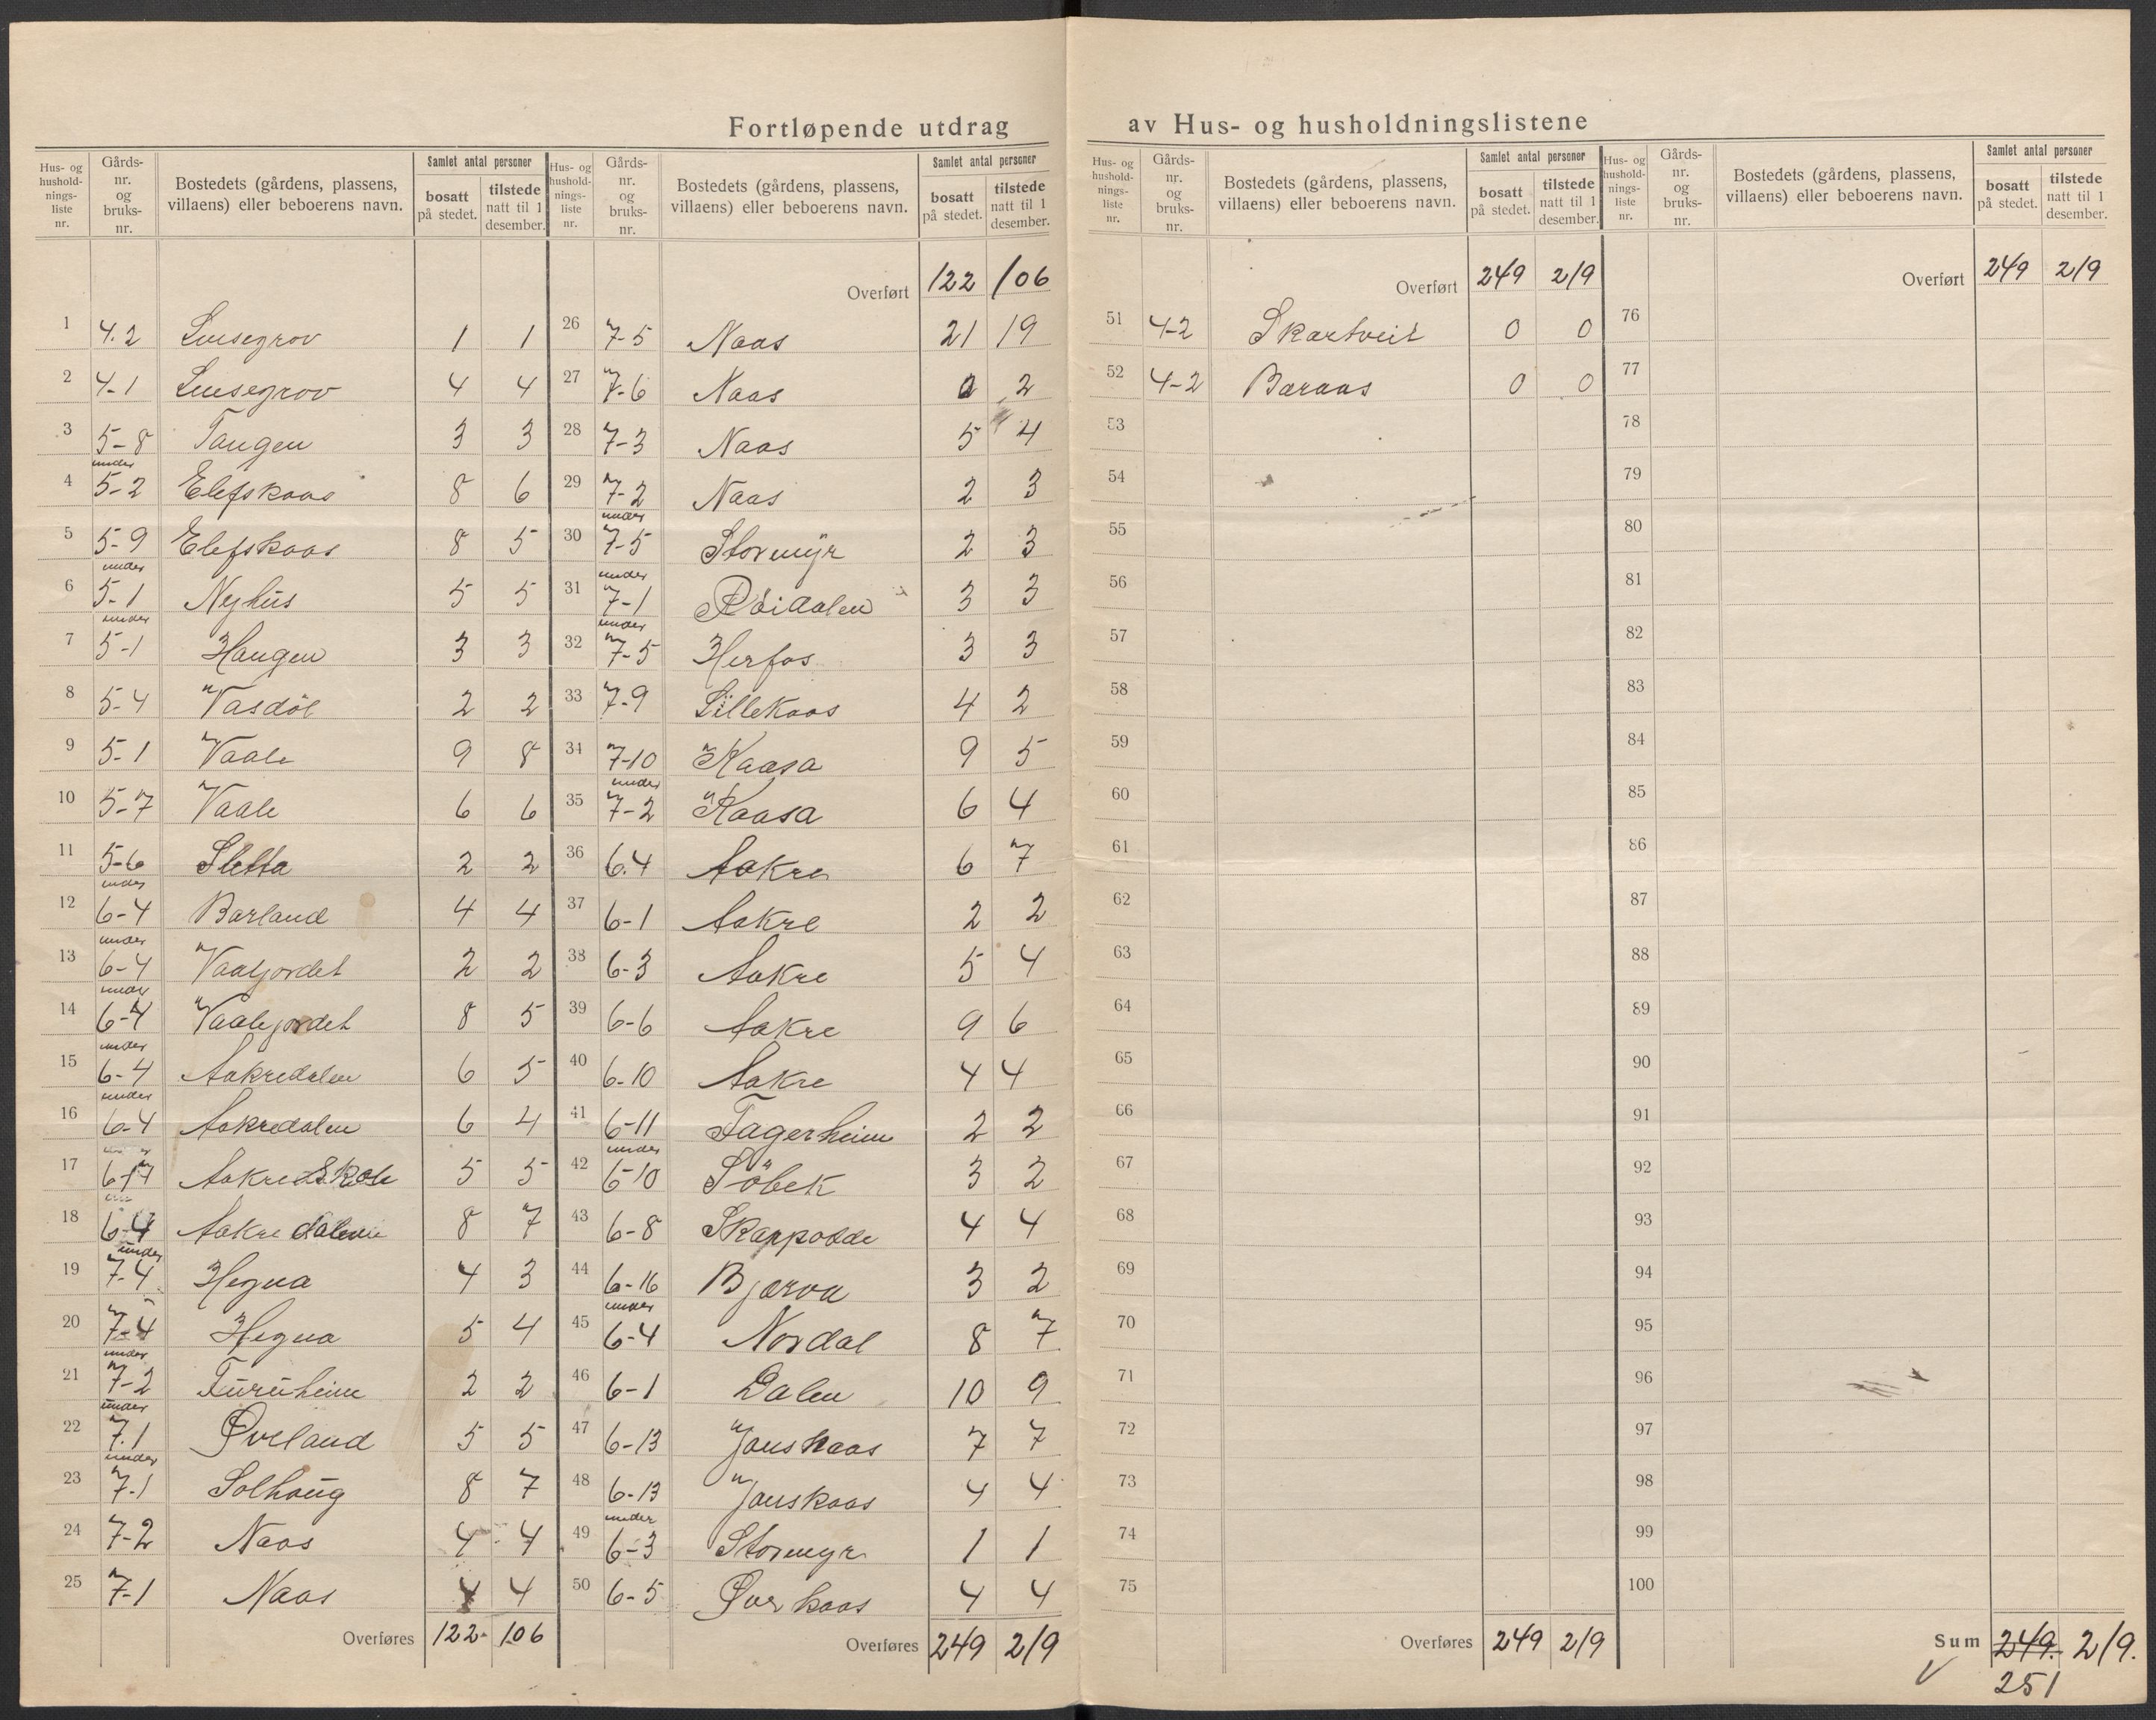 Fortløpende utdrag av Hus- og husholdningslistene
Hus- og hushold-nings-liste nr. | Gårds-nr. og bruks-nr. | Bostedets (gårdens, plassens, villaens) eller beboerens navn. | Samlet antal personer | bosatt på stedet. | tilstede natt til 1 desember.
1 4.2 Lusegrov 1 1
2 4-1 Lusegrov 4 4
3 5-8 Tangen 3 3
4 under 5-2 Elefskaas 8 6
5 5-9 Elefskaas 8 5
6 under 5-1 Nyhus 5 5
7 under 5-1 Haugen 3 3
8 5-4 Vasdöl 2 2
9 5-1 Vaale 9 8
10 5-7 Vaale 6 6
11 5-6 Sletta 2 2
12 under 6-4 Barland 4 4
13 under 6-4 Vaaljordet 2 2
14 under 6-4 Vaalejordet 8 5
15 under 6-4 Aakredalen 6 5
16 under 6-4 Aakredalen 6 4
17 Aakre Skole 5 5
18 6-4 Aakredalen 8 7
19 under 7-4 Hegna 4 3
20 7-4 Hegna 5 4
21 under 7-2 Furuheim 2 2
22 under 7.1 Øveland 5 5
23 under 7-1 Solhaug 8 7
24 7-2 Naas 4 4
25 7-1 Naas 4 4
Overføres 122 106
Hus- og hushold-nings-liste nr. | Gårds-nr. og bruks-nr. | Bostedets (gårdens, plassens, villaens) eller beboerens navn. | Samlet antal personer | bosatt på stedet. | tilstede natt til 1 desember.
Overført 122 106
26 7-5 Naas 21 19
27 7-6 Naas 0 2
28 7-3 Naas 5 4
29 7-2 Naas 2 3
30 under 7-5 Stormyr 2 3
31 under 7-1 Röidalen 3 3
32 under 7-5 Herfos 3 3
33 7-9 Lillekaas 4 2
34 7-10 Kaasa 9 5
35 under 7-2 Kaasa 6 4
36 6.4 Aakre 6 7
37 6-1 Aakre 2 2
38 6-3 Aakre 5 4
39 6-6 Aakre 9 6
40 6-10 Aakre 4 4
41 6-11 Fagerheim 2 2
42 under 6-10 Söbek 3 2
43 6-8 Skarpodde 4 4
44 6-16 Bjørva 3 2
45 under 6-4 Nordal 8 7
46 6-1 Dalen 10 9
47 6-13 Jonskaas 7 7
48 6-13 Jonskaas 4 4
49 under 6-3 Stormyr 1 1
50 6-5 Øverkaas 4 4
Overføres 249 219
Hus- og hushold-nings-liste nr. | Gårds-nr. og bruks-nr. | Bostedets (gårdens, plassens, villaens) eller beboerens navn. | Samlet antal personer | bosatt på stedet. | tilstede natt til 1 desember.
Overført 249 219
51 4-2 Skartveit 0 0
52 4-2 Bæraas 0 0
53
54
55
56
57
58
59
60
61
62
63
64
65
66
67
68
69
70
71
72
73
74
75
Overføres 249 219
Hus- og hushold-nings-liste nr. | Gårds-nr. og bruks-nr. | Bostedets (gårdens, plassens, villaens) eller beboerens navn. | Samlet antal personer | bosatt på stedet. | tilstede natt til 1 desember.
Overført 249 219
76
77
78
79
80
81
82
83
84
85
86
87
88
89
90
91
92
93
94
95
96
97
98
99
100
Sum 249. 219.
251